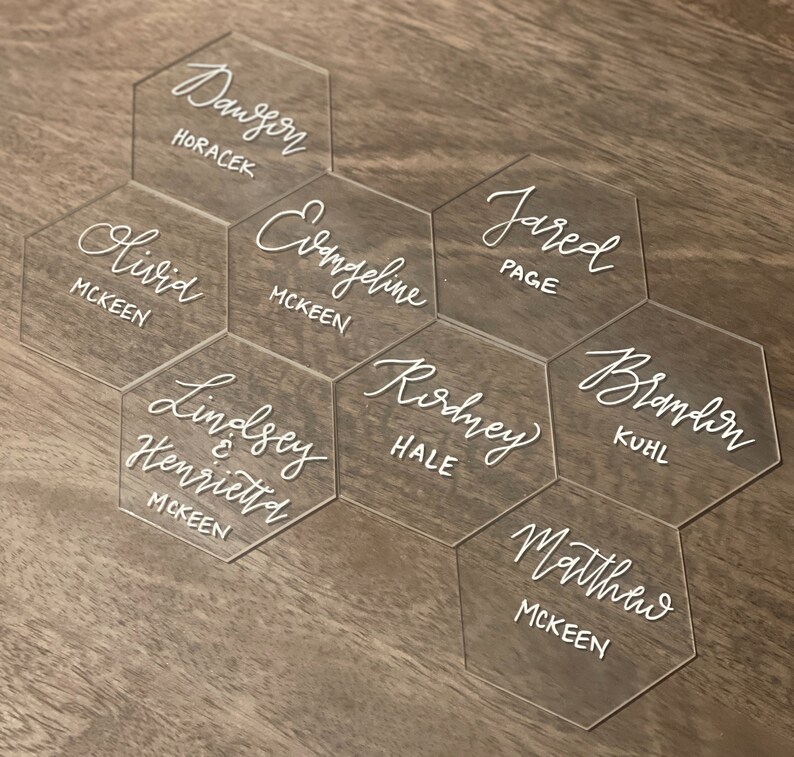 Dawson
HORACEK
Olivia
MCKEEN
Evangeline
MCKEEN
Jared
PAGE
Lindsey
&
Henrietta
MCKEEN
Rodney
HALE
Brandon
KUHL
Matthew
MCKEEN